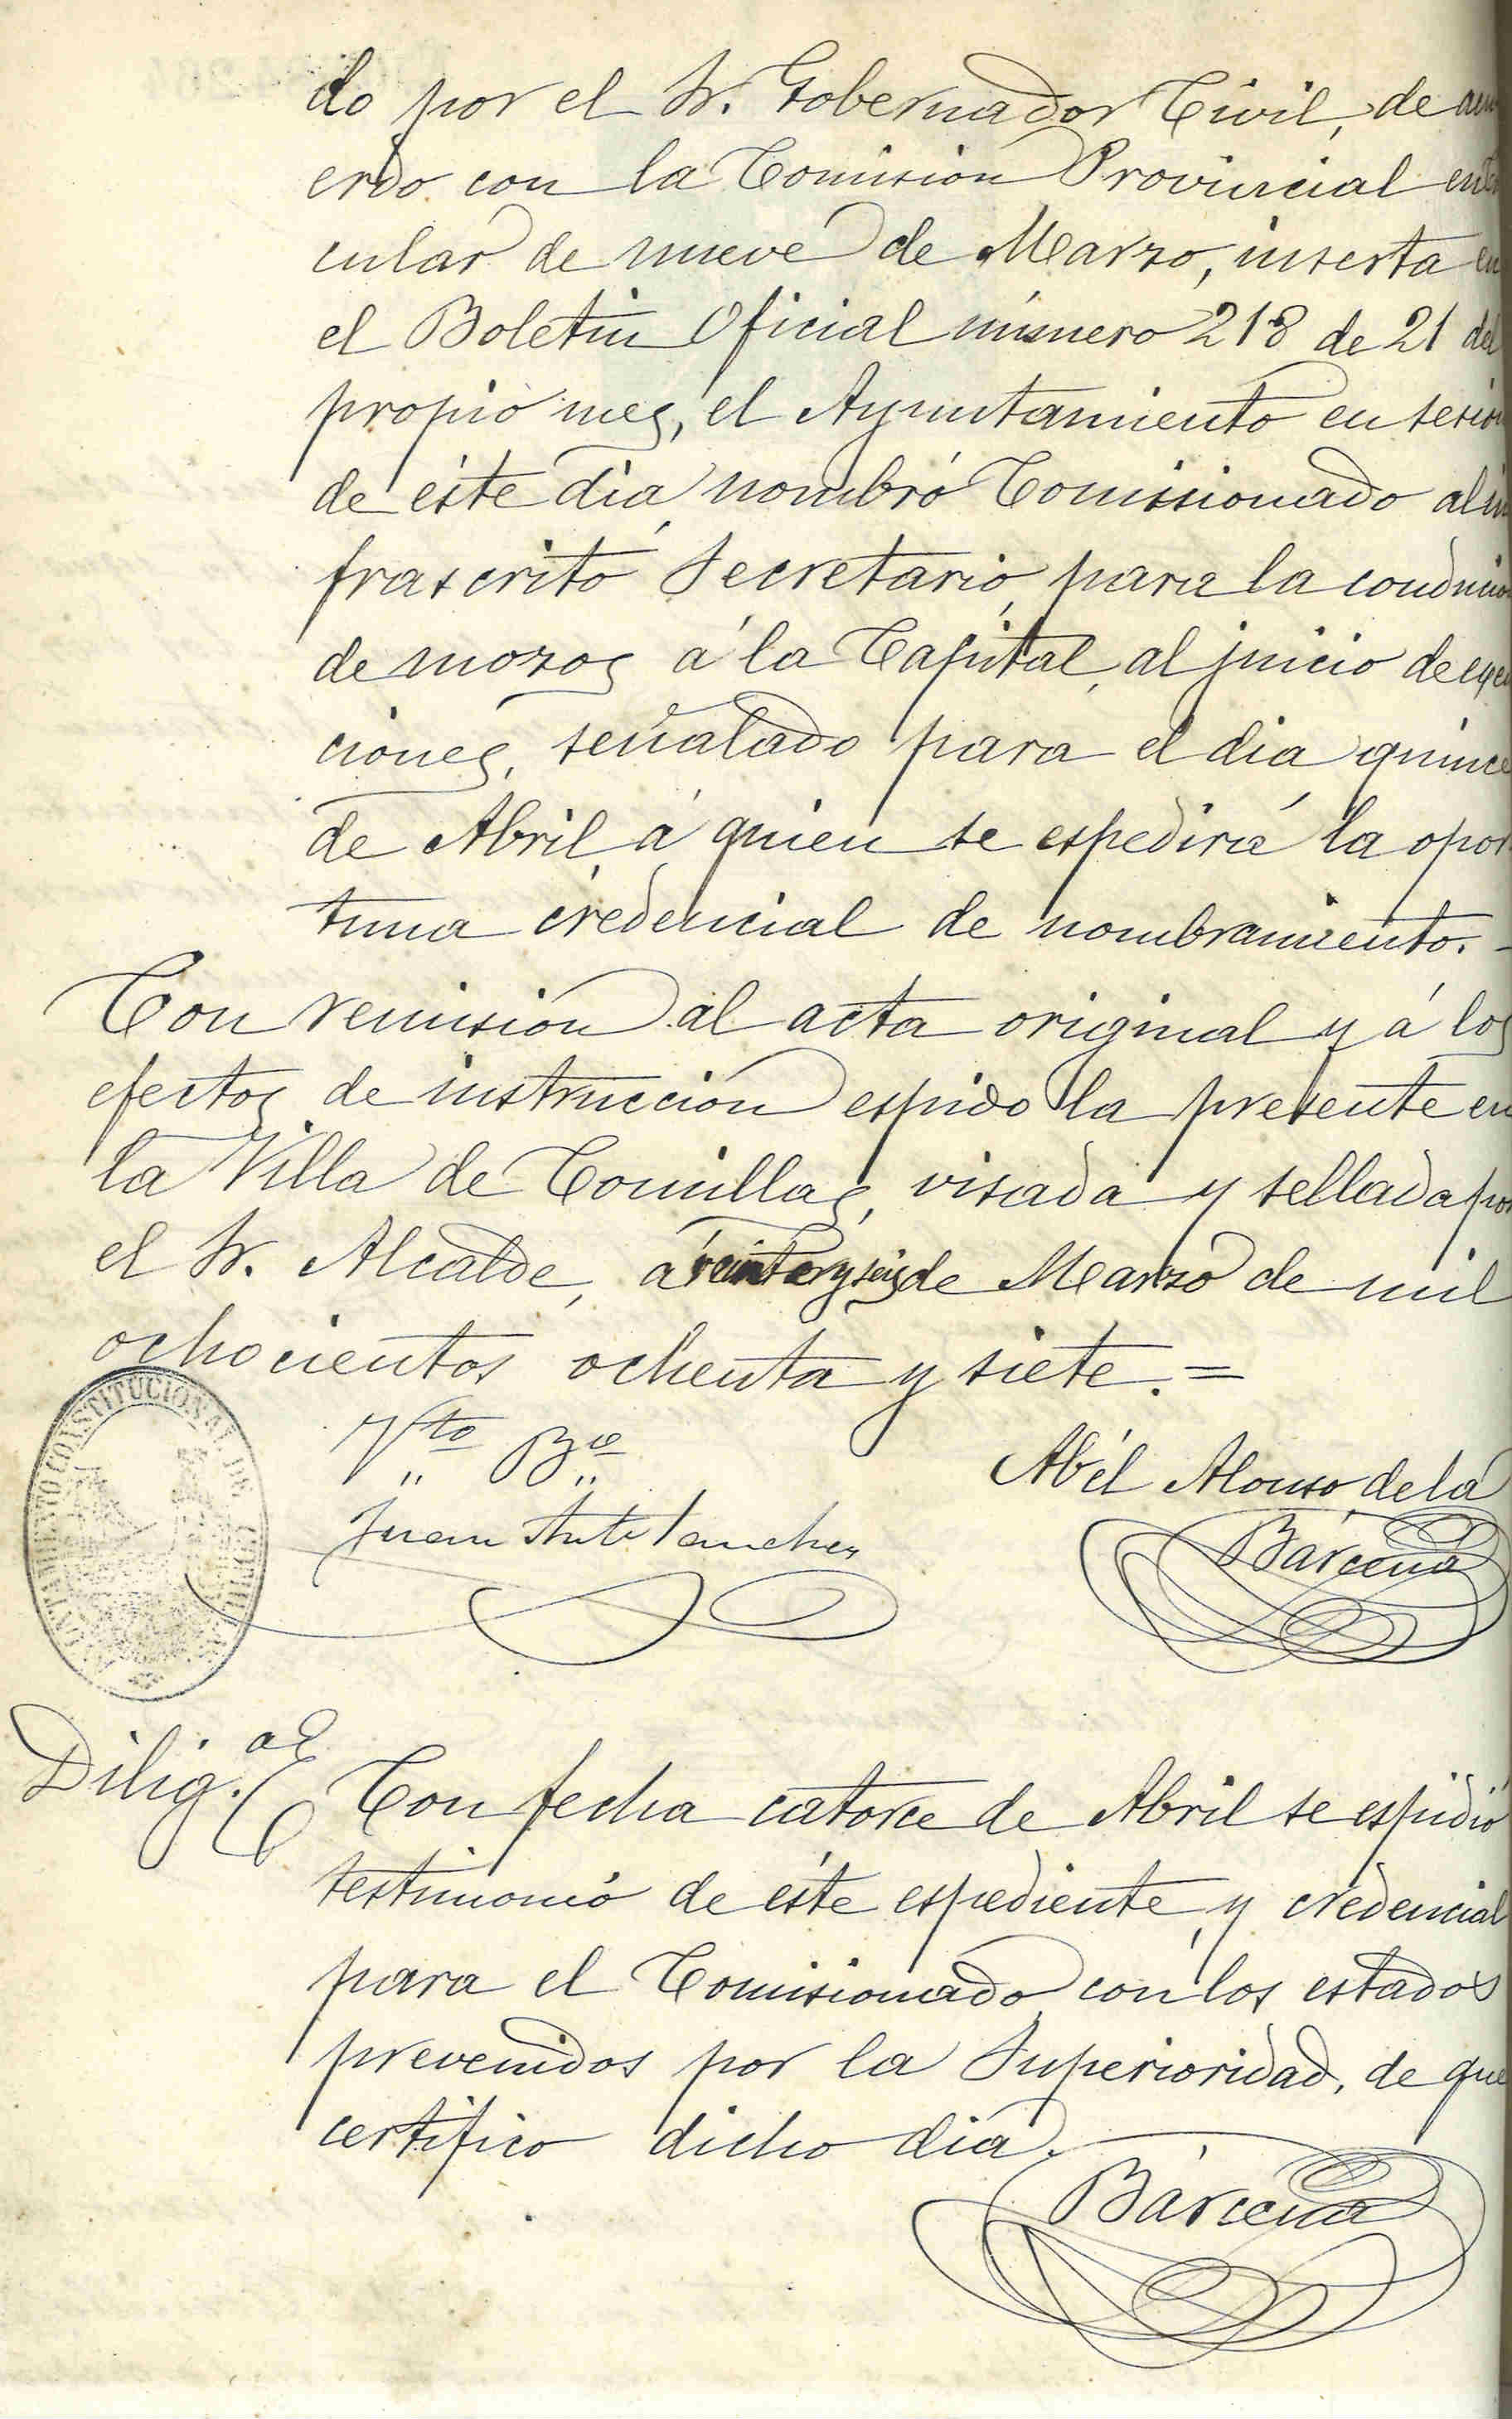 do por el Sr. Gobernador Civil, de acu
erdo con la Comision Provincial en
cular de nueve de Marzo, inserta en
el Boletin Oficial número 218 de 21 del
propio mes, el Ayuntamiento en sesion
de éste dia, nombró Comissionado al in
frascrito Secretario, para la conducion
de mozos á la Capital, al juicio de exen
ciones, señalado para el dia quince
de Abril, á quien se espedirá la opor
tuna credencial de nombramiento. -
Con remision al acta original y á los
efectos de instruccion espido la presente en
la Villa de Comillas, visada y sellada por
el Sr. Alcalde, á veinte y seis de Marzo de mil
ochocientos ochenta y siete. =
AYUNTAMIENTO CONSTITUCIONAL DE COMILLAS
Vto Bno
Juan Anto Sanchez
Abél Alonso de la
Bárcena
Dilig.a
Con fecha catorce de Abril se espidió
testimonio de éste espediente, y credencial
para el Comisionado, con los estados
prevenidos por la Superioridad, de que
certifico dicho dia.
Bárcena